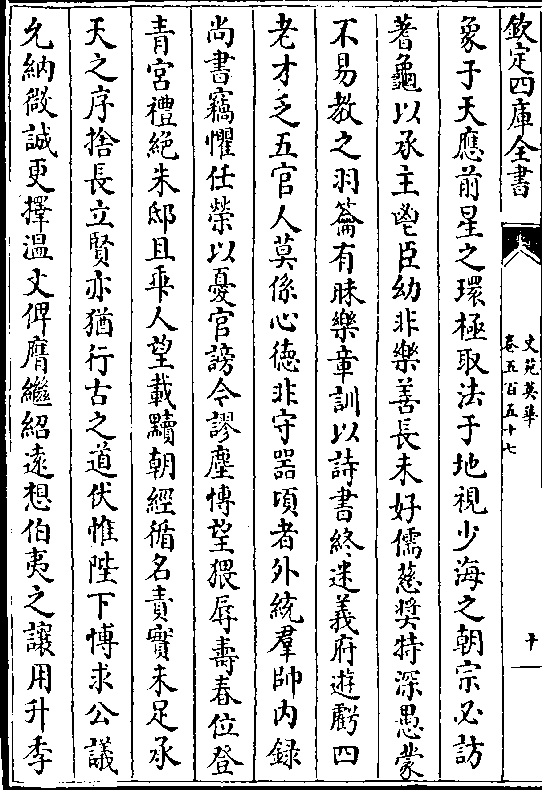 欽定四庫全書
文苑英華
卷五百五十七
十
象于天應前星之環極取法于地視少海之朝宗必訪
蓍龜以承主鬯臣幼非樂善長未好儒慈奬特深愚蒙
不易教之羽籥有昧樂章訓以詩書終迷義府遊虧四
老才乏五官人莫係心德非守器頃者外統羣帥内録
尚書竊懼任榮以憂官謗今謬塵博望猥辱壽春位登
青宮禮絶朱邸且乖人望載黷朝經循名責實未足承
天之序捨長立賢亦猶行古之道伏惟陛下博求公議
允納微誠更擇温文俾膺繼紹遠想伯夷之讓用升季